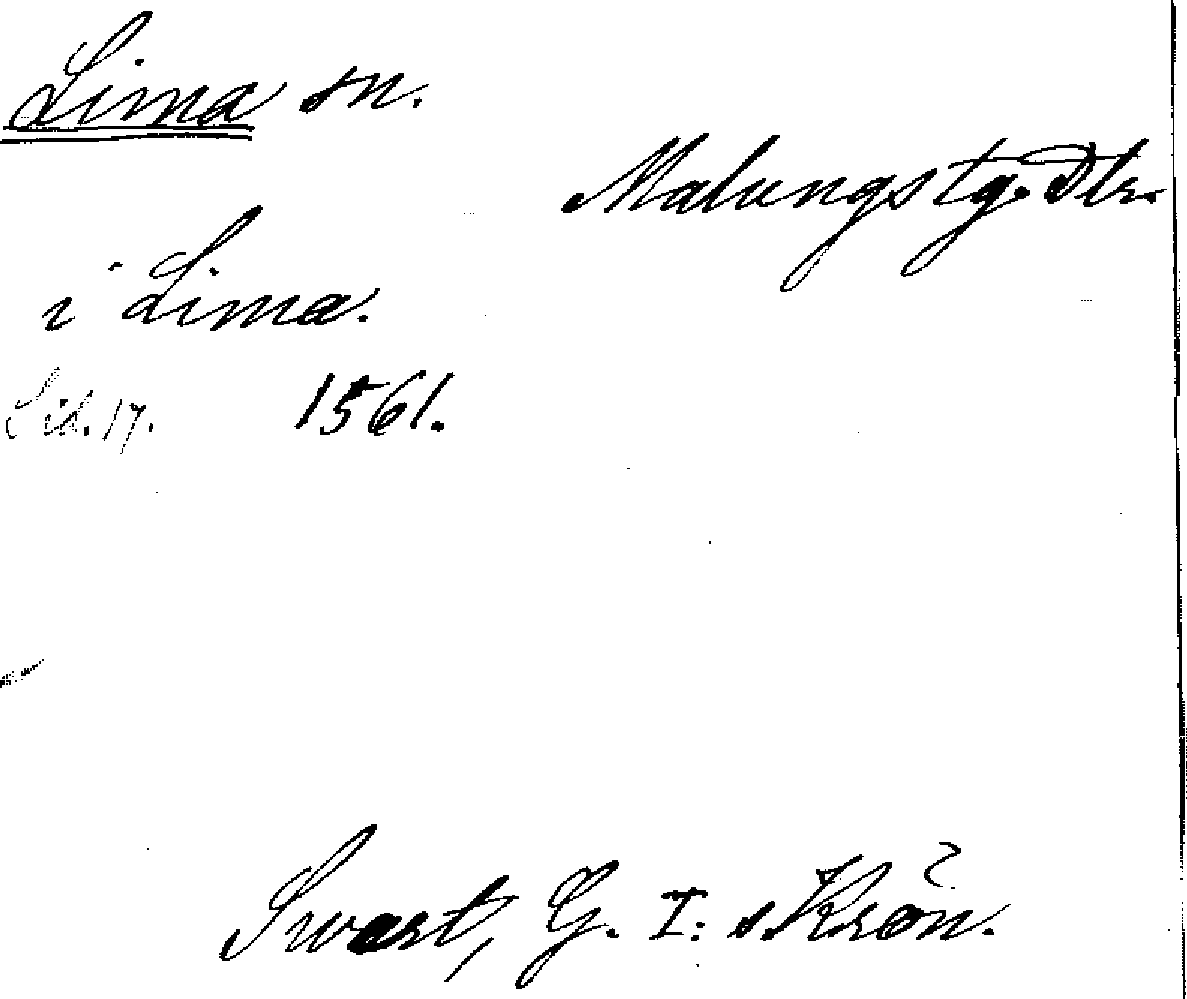 Lima sn.
Malungs tg. Dlr.
i Lima.
Sid. 17. 1561.
Swart, G. I:s Krön.